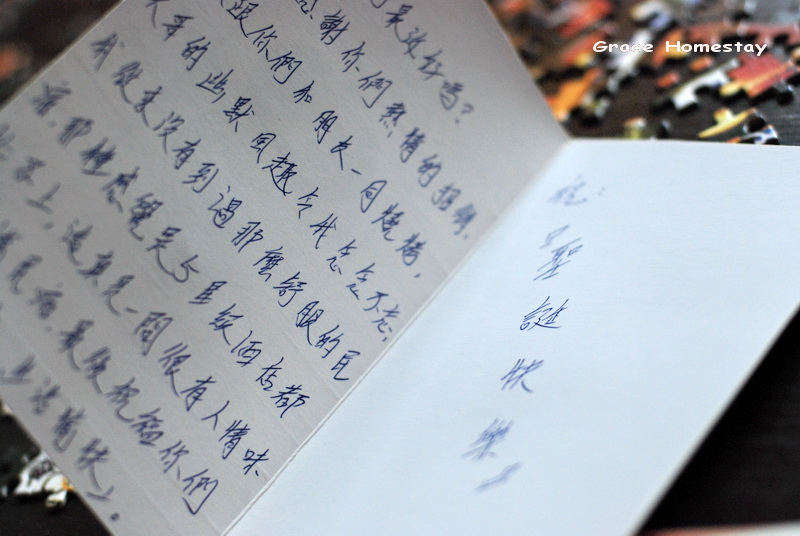 Grace Homestay
最近好嗎?
謝你們熱情的招待,
跟你們和朋友一同燒烤,
哥的幽默風趣令我念念不忘,
我從來沒有到過那麼舒服的民
宿,那種感覺是5星級酒店都
比不上,這真是一間很有人情味
民宿,最後祝福你們
生活愉快。
祝:
聖誕快樂!!